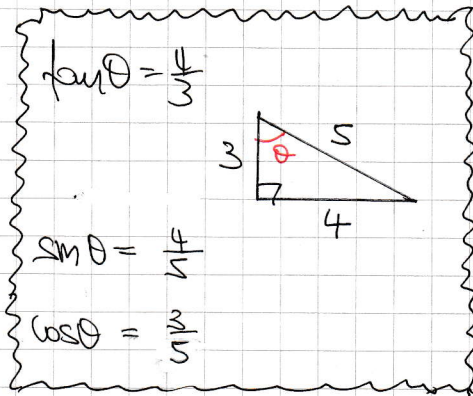 tanθ = 4/3
3
θ
5
4
sinθ = 4/5
cosθ = 3/5